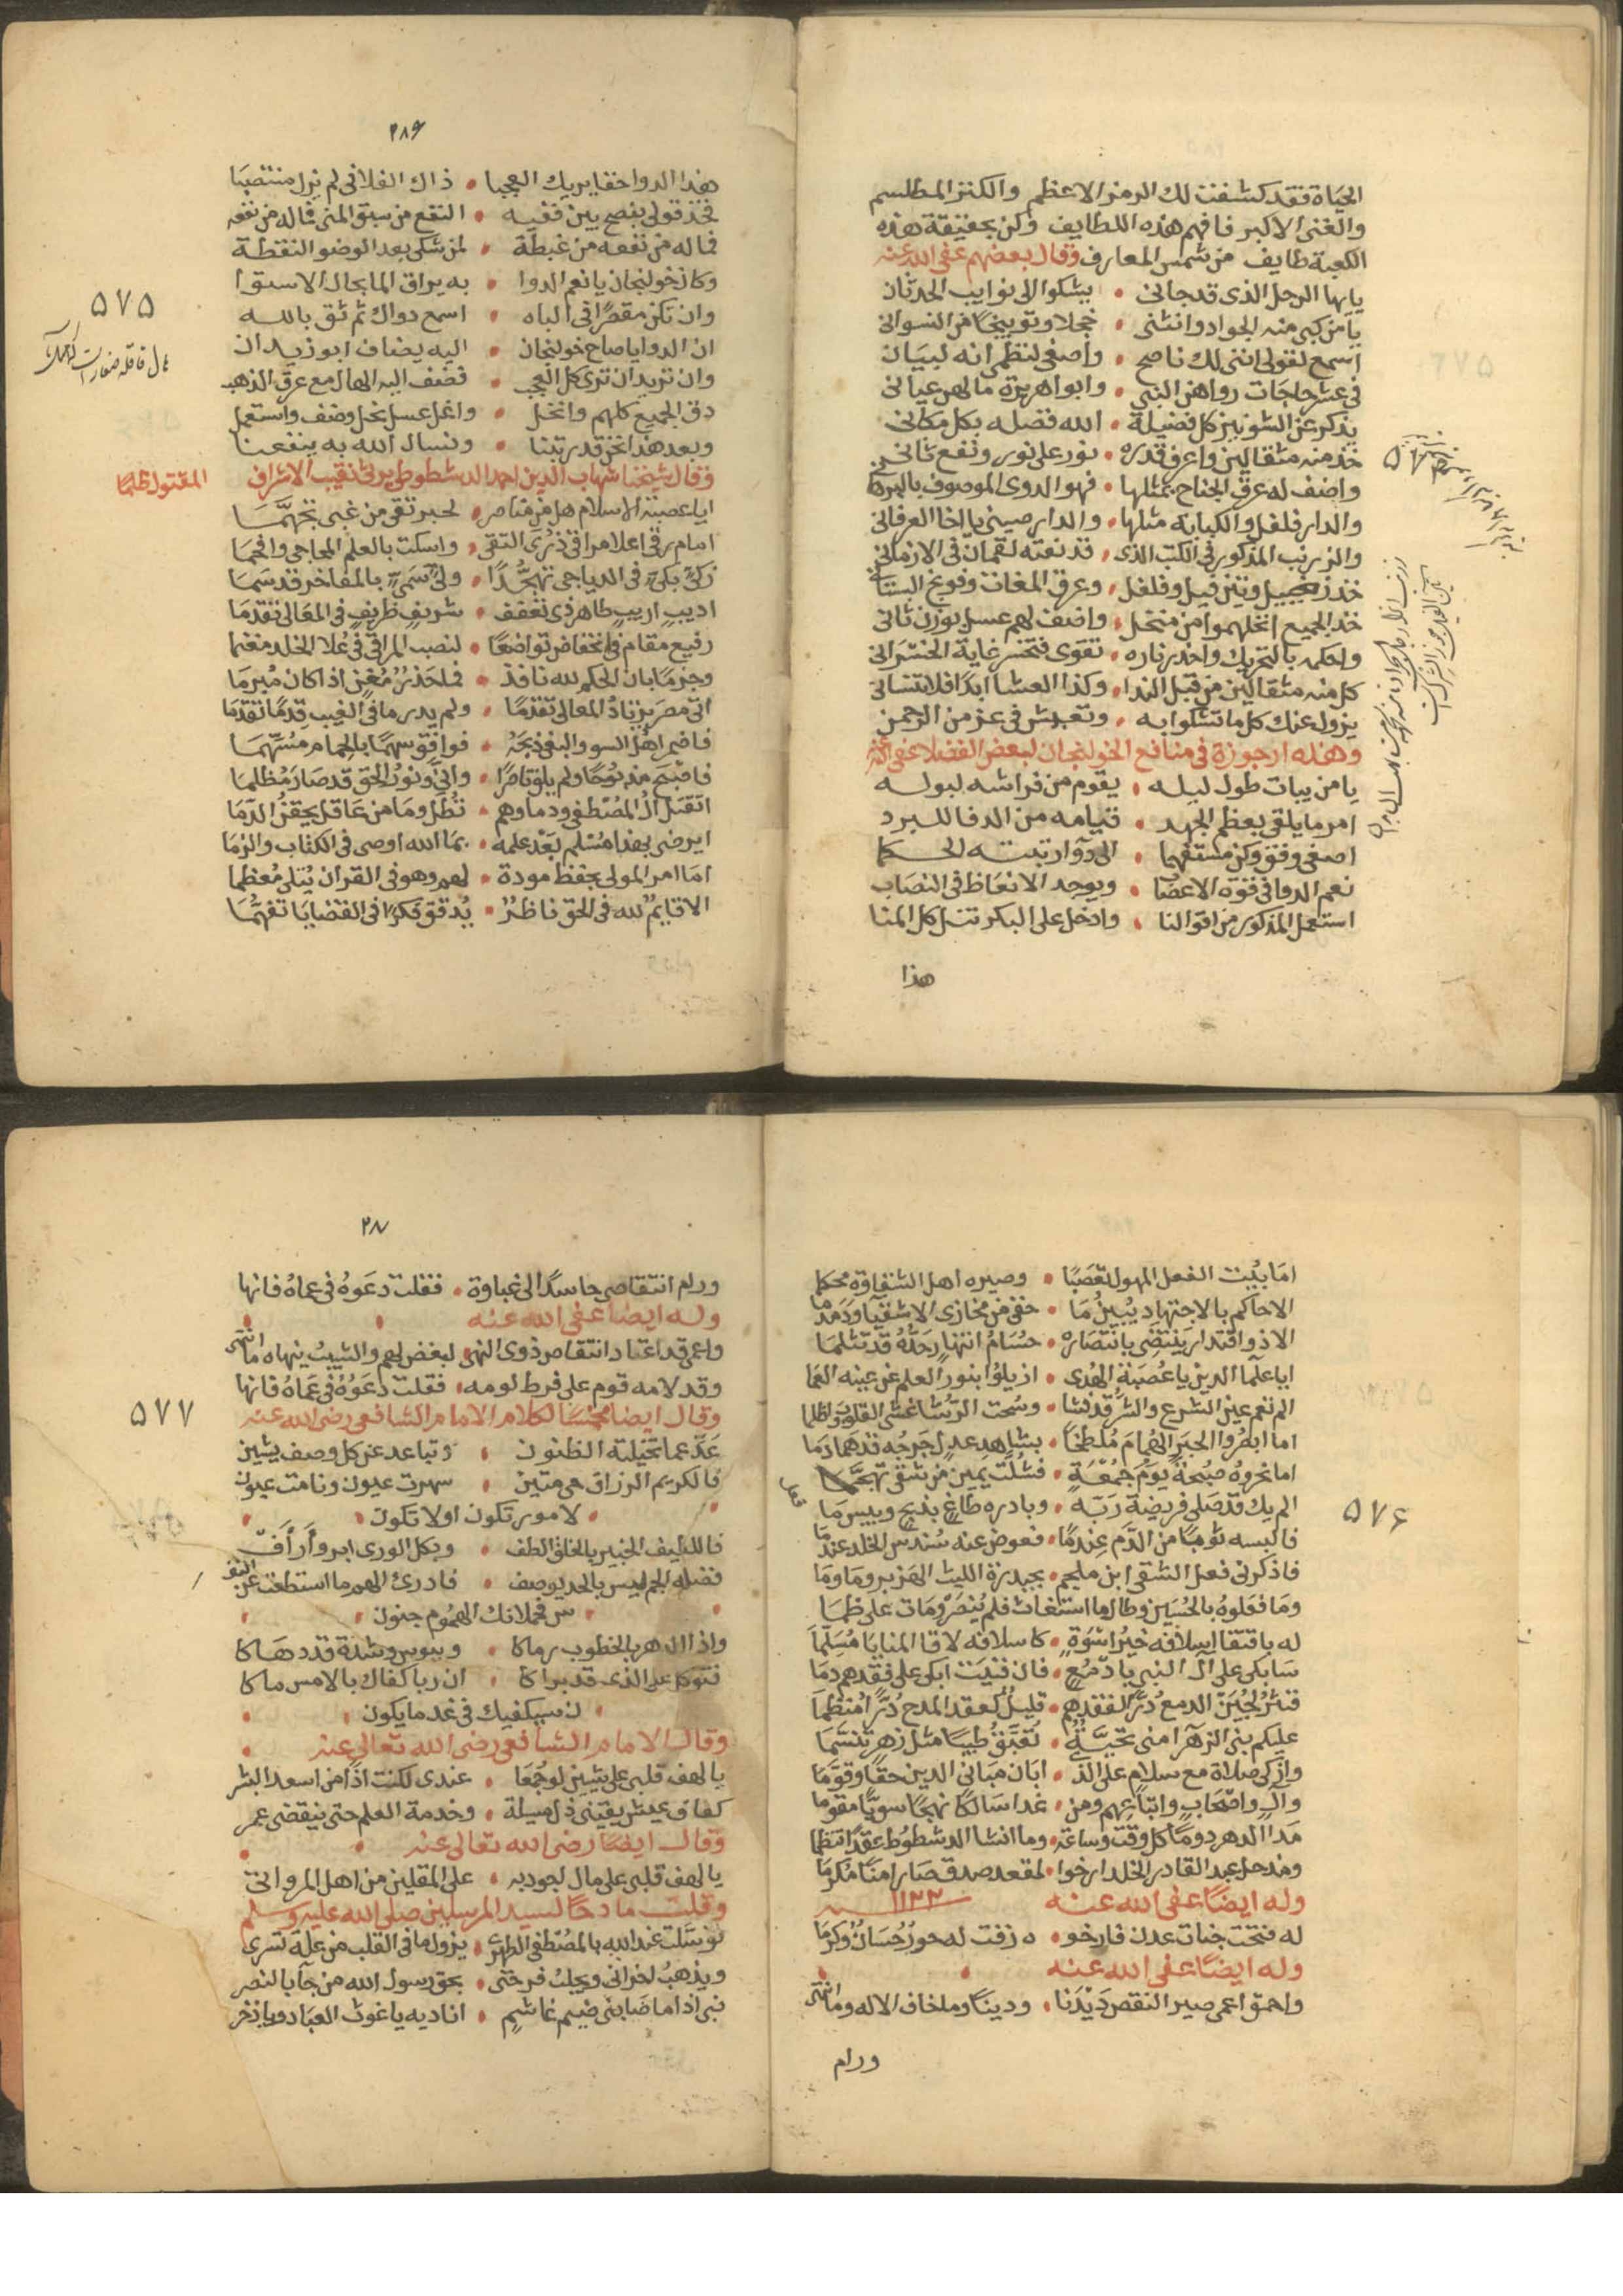 الحياة فقد كشفت لك الرمز الاعظم والكنز المطلسم
والغنى الاكبر فافهم هذه اللطايف وكن بحقيقة هذه
الكعبة طايف من شمس المعارف وقال بعضهم عفى الله عنه
يايها الرجل الذى قد جانى • يشكوا الى نوايب الحدثان
يا من كبى منه الجواد وانثنى • خجلا وتوبيخا من النسوانى
اسمع لقولى اننى لك ناصح • واصغى لنظمى انه لبيان
فى عشر حاجات رواهن النبى • وابوا هريرة ما لهن عيانى
يذكر عن الشونيز كل فضيلة • الله فضله بكل مكانى
خذ منه مثقالين واعرف قدره • نور على نور ونفع ثانى
واضف له عرق الجناح بمثلها • فهو الدوى الموصوف
والدار فلفل والكبابه مثلها • والدار صينى يا اخا العرفانى
والزرنب المذكور فى الكتب الذى • قد نعته لقمان فى الازمانى
خذ زنجبيل وتين فيل وفلفل • وعرق المغات وفونج
خذ الجميع انخلهموا من منخل • واضف لهم عسل بوزن ثانى
واحكمه بالتحريك واحذر ناره • تقوى فتخسر غاية الخسرانى
كل منه مثقالين من قبل الندا • وكذا العشا ابدا فلا تنسانى
يزول عنك كل ما تشكوا به • وتعيش فى عز من الرحمن
وهذه ارجوزة فى منافع الخولنجان لبعض الفضلا عفى الله عنه
يا من يبات طول ليله • يقوم من فراشه لبوله
امر ما يلقى بعظم الجهد • قيامه من الدفا للبرد
اصغى وفق وكن مستفهما • الى دوآ رتبته الحكما
نعم الدوا فى قوة الاعضا • ويوجد الانعاظ فى النصاب
استعمل المذكور من اقوالنا • وادخل على البكر تنل كل المنا
هذا
٢٨٦
هذا الدوا حقا يريك العجبا • ذاك الفلانى لم يزل منتصبا
فخذ قولى بنصح بين فقيه • النقع من سبق المنى فاله من نفعه
فما له من نفعه من غبطة • لمن شكى بعد الوضو النقطة
وكان خولنجان يا نعم الدوا • به يراق الما بحال الاستوا
وان تكن مقصرا فى الباه • اسمع دواك ثم ثق بالله
ان الدوا يا صاح خولنجان • اليه يضاف ابو زيدان
وان تريد ان ترى كل العجب • فضف اليه الهال مع عرق الذهب
دق الجميع كلهم وانخل • واغل عسل نحل وضف واستعمل
وبعد هذا نخز قد رتبنا • ونسال الله به ينفعنا
٥٧٥
وقال شيخنا شهاب الدين احمد الدشطوطى يرثى نقيب الاشراف المقتول ظلما
ايا عصبة الاسلام هل من مناصر • لحبر تقى من غبى تجهما
امام رقى اعلا مراقى ذرى التقى • واسكت بالعلم المحاجى وافحما
زكى بكى فى الدياجى تهجدا • ولى سمى بالمفاخر قد سما
اديب اريب طاهر ذى تعفف • شريف ظريف فى المعالى تقدما
رفيع مقام فى انخفاض تواضعا • لنصب المراقى فى علا الخلد مغنما
وجزما بان الحكم لله نافذ • فما حذر مغن اذا كان مبرما
اتى مصر يزناد المعالى تقدما • ولم يدر ما فى الغيب قدما تقدما
فاضمر اهل السو والبغى ذبحه • فوافق سهما بالحمام مسهما
فاضبح منه نوحا ولم يلق ناصرا • وانى ونور الحق قد صار مظلما
اتقتل ال المصطفى ودماوهم • تطل وما من عاقل يحقن الدما
ايرضى بهذا مسلم بعد علمه • بما الله اوصى فى الكتاب والزما
اما امر المولى بحفظ مودة • لهم وهو فى القران يتلى معظما
الا قايم لله فى الحق ناظر • يدقق فكرا فى القضايا تفهما
اما يثبت الفعل المهول تعصبا • وصيره اهل الشقاوة محكما
الا حاكم بالاجتهاد يبين ما • خفى من مخازى الاشقيا
الا ذو اقتدار ينتضى بانتصاره • حسام انتها رحده قد تثلما
ايا علما الدين يا عصبة الهدى • ازيلوا بنور العلم عن عينه العما
الم نعم عين الشرع والشر قد نشا • وسحت الرشا غشى القلوب واظلما
اما ابصروا الحبر الهمام ملطخا • بشاهد عدل جرحه قد هما دما
اما نحروه صبحة يوم جمعة • فشلت يمين من شقى تهجما
الم يك قد صلى فريضة ربه • وبادره طاغ بذبح وبيس ما
٥٧٦
فالبسه ثوبا من الدم عندما • فعوض عنه سندس الخلد عندما
فاذكرنى فعل الشقى ابن ملجم • بحيدرة الليث الهزبر وما وما
وما فعلوه بالحسين وطال ما استغاث فلم ينصر ومات على ظما
له باقتفا اسلافه خير اسوة • كاسلافه لاقا المنايا مسلما
سابكى على ال النبى بادمع • فان فنيت ابكى على فقدهم دما
فنثر لجين الدمع در لفقدهم • قليل كعقد المدح درا منظما
عليكم بنى الزهرا منى تحية • تعبق طيبا مثل زهر تنسما
وازكى صلاة مع سلام على الذى • ابان مبانى الدين حقا وقوما
وال واصحاب واتباعهم ومن • غدا سالكا نهجا سويا مقوما
مدا الدهر دوما كل وقت وساعة • وما انشا الدشطوط عقدا تنظما
ومذ حل عبد القادر الخلد ارخوا • لمقعد صدق صار امنا مكرما
وله ايضا عفى الله عنه ١١٢٣
له فتحت جنات عدن فارخو • زفت له حور حسان وكرما
وله ايضا عفى الله عنه
واحمق اعمى صير النقص ديدنا • ودينا وما خاف الاله وما انتهى
ورام
ورام انتقاصى حاسدا الى غباوة • فقلت دعوه فى عماه فانها
وله ايضا عفى الله عنه
واعمى قد اعتاد انتقاص ذوى النهى • لبغض لهم والشيب ينهاه ما انتهى
وقد لامه قوم على فرط لومه • فقلت دعوه فى عماه فانها
وقال ايضا مخمسا لكلام الامام الشافعى رضى الله عنه
٥٧٧
عد عما تخيلته الظنون • وتباعد عن كل وصف يشين
فالكريم الرزاق حى متين • سهرت عيون ونامت عيون
لامور تكون او لا تكون
فاللطيف الخبير بالخلق الطف • وبكل الورى ابر وأرأف
فضله الجم ليس بالحد يوصف • فادرئ الهم ما استطعت عن النفس
س فحملانك الهموم جنون
واذا الدهر بالخطوب رماكا • وببوس وشدة قد دهاكا
فتوكل على الذى قد براكا • ان ربا كفاك بالامس ما كا
ن سيكفيك فى غد ما يكون
وقال الامام الشافعى رضى الله تعالى عنه
يا لهف قلبى على شيين لو جمعا • عندى لكنت اذا من اسعد البشر
كفاف عيش يقينى ذل مسيلة • وخدمة العلم حتى ينقضى عمر
وقال ايضا رضى الله تعالى عنه
يا لهف قلبى على مال اجود به • على المقلين من اهل المرواتى
وقلت مادحا لسيد المرسلين صلى الله عليه وسلم
توسلت عند الله بالمصطفى الطهر • يزول ما فى القلب من علة تسرى
ويذهب احزانى ويجلب فرحتى • بحق رسول الله من جآ بالنصر
نبى اذا ما ضابنى ضيم غاشم • اناديه يا غوث العباد ويا ذخر